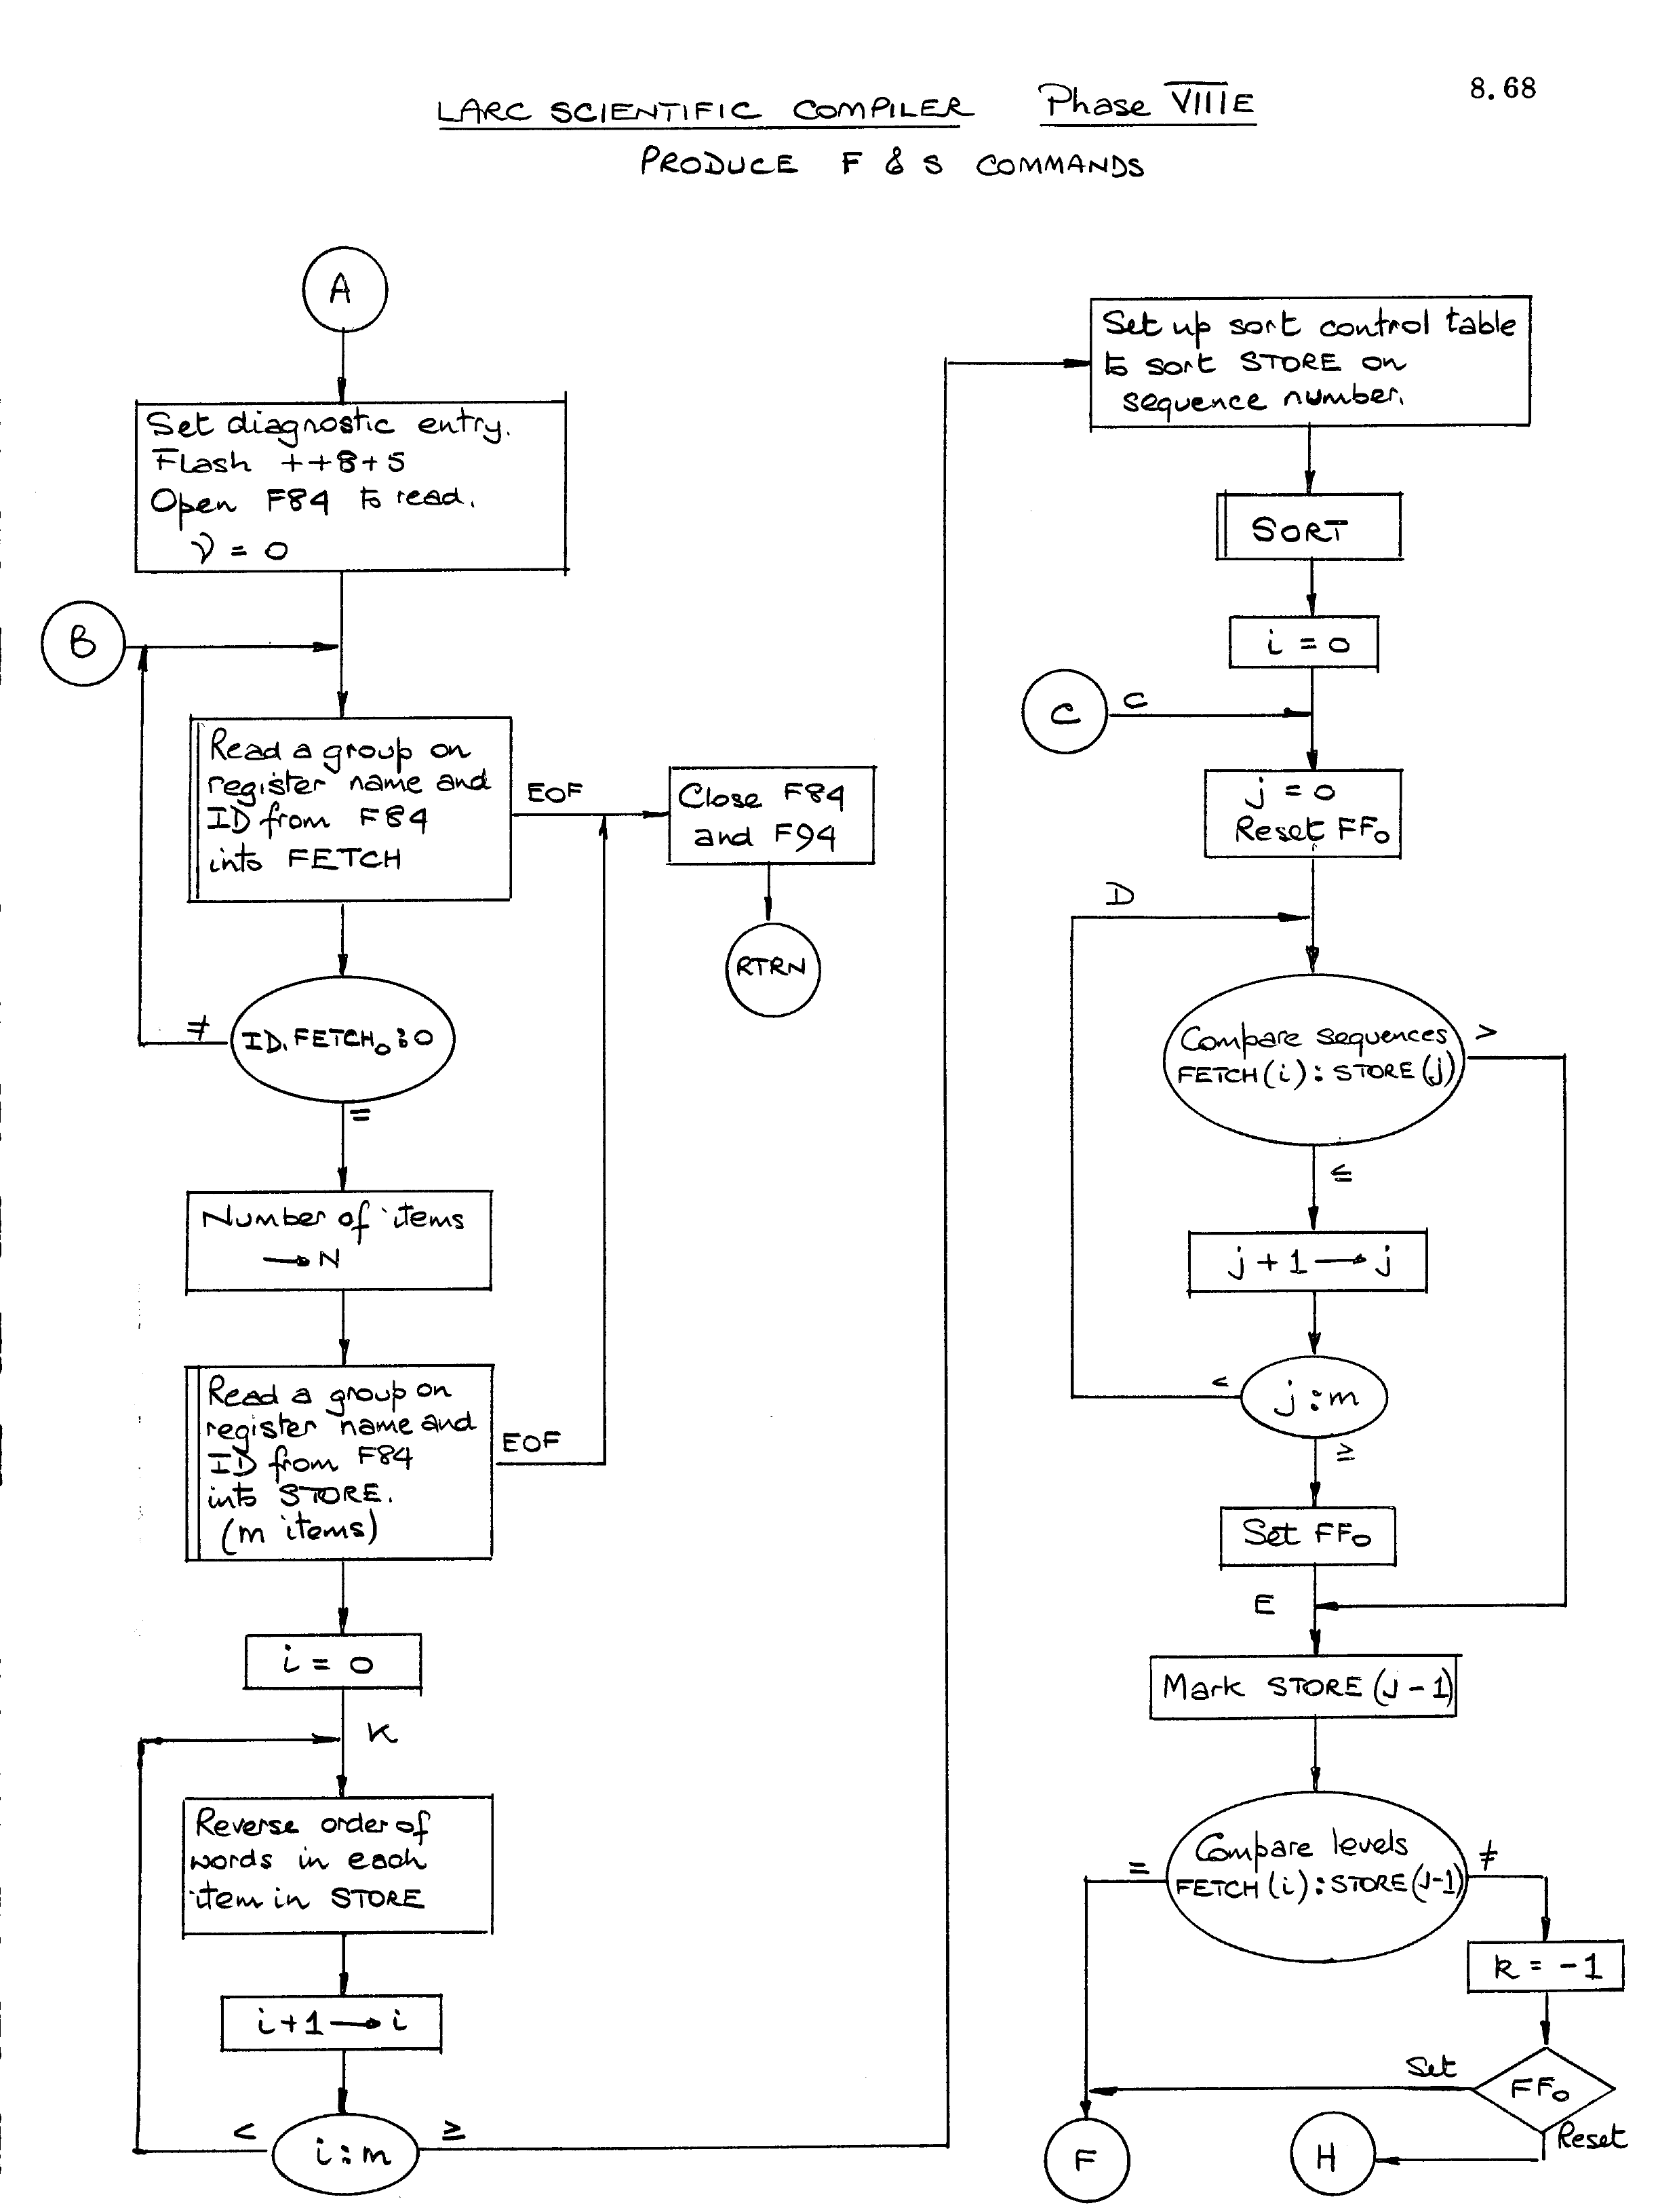 8.68
LARC SCIENTIFIC COMPILER Phase VIII E
PRODUCE F & S COMMANDS
A
Set diagnostic entry.
Flash ++8+5
Open F84 to read.
ν = 0
B
Read a group on
register name and
ID from F84
into FETCH
EOF
Close F84
and F94
RTRN
≠
ID. FETCH₀ : 0
=
Number of items
→ N
Read a group on
register name and
ID from F84
into STORE.
(m items)
EOF
i = 0
K
Reverse order of
words in each
item in STORE
i+1 → i
<
i : m
≥
Set up sort control table
to sort STORE on
sequence number.
SORT
i = 0
C
C
j = 0
Reset FF₀
D
Compare sequences
FETCH(i) : STORE(j)
>
≤
j+1 → j
<
j : m
≥
Set FF₀
E
Mark STORE (j-1)
Compare levels
FETCH(i) : STORE(j-1)
=
≠
k = -1
Set
FF₀
Reset
F
H